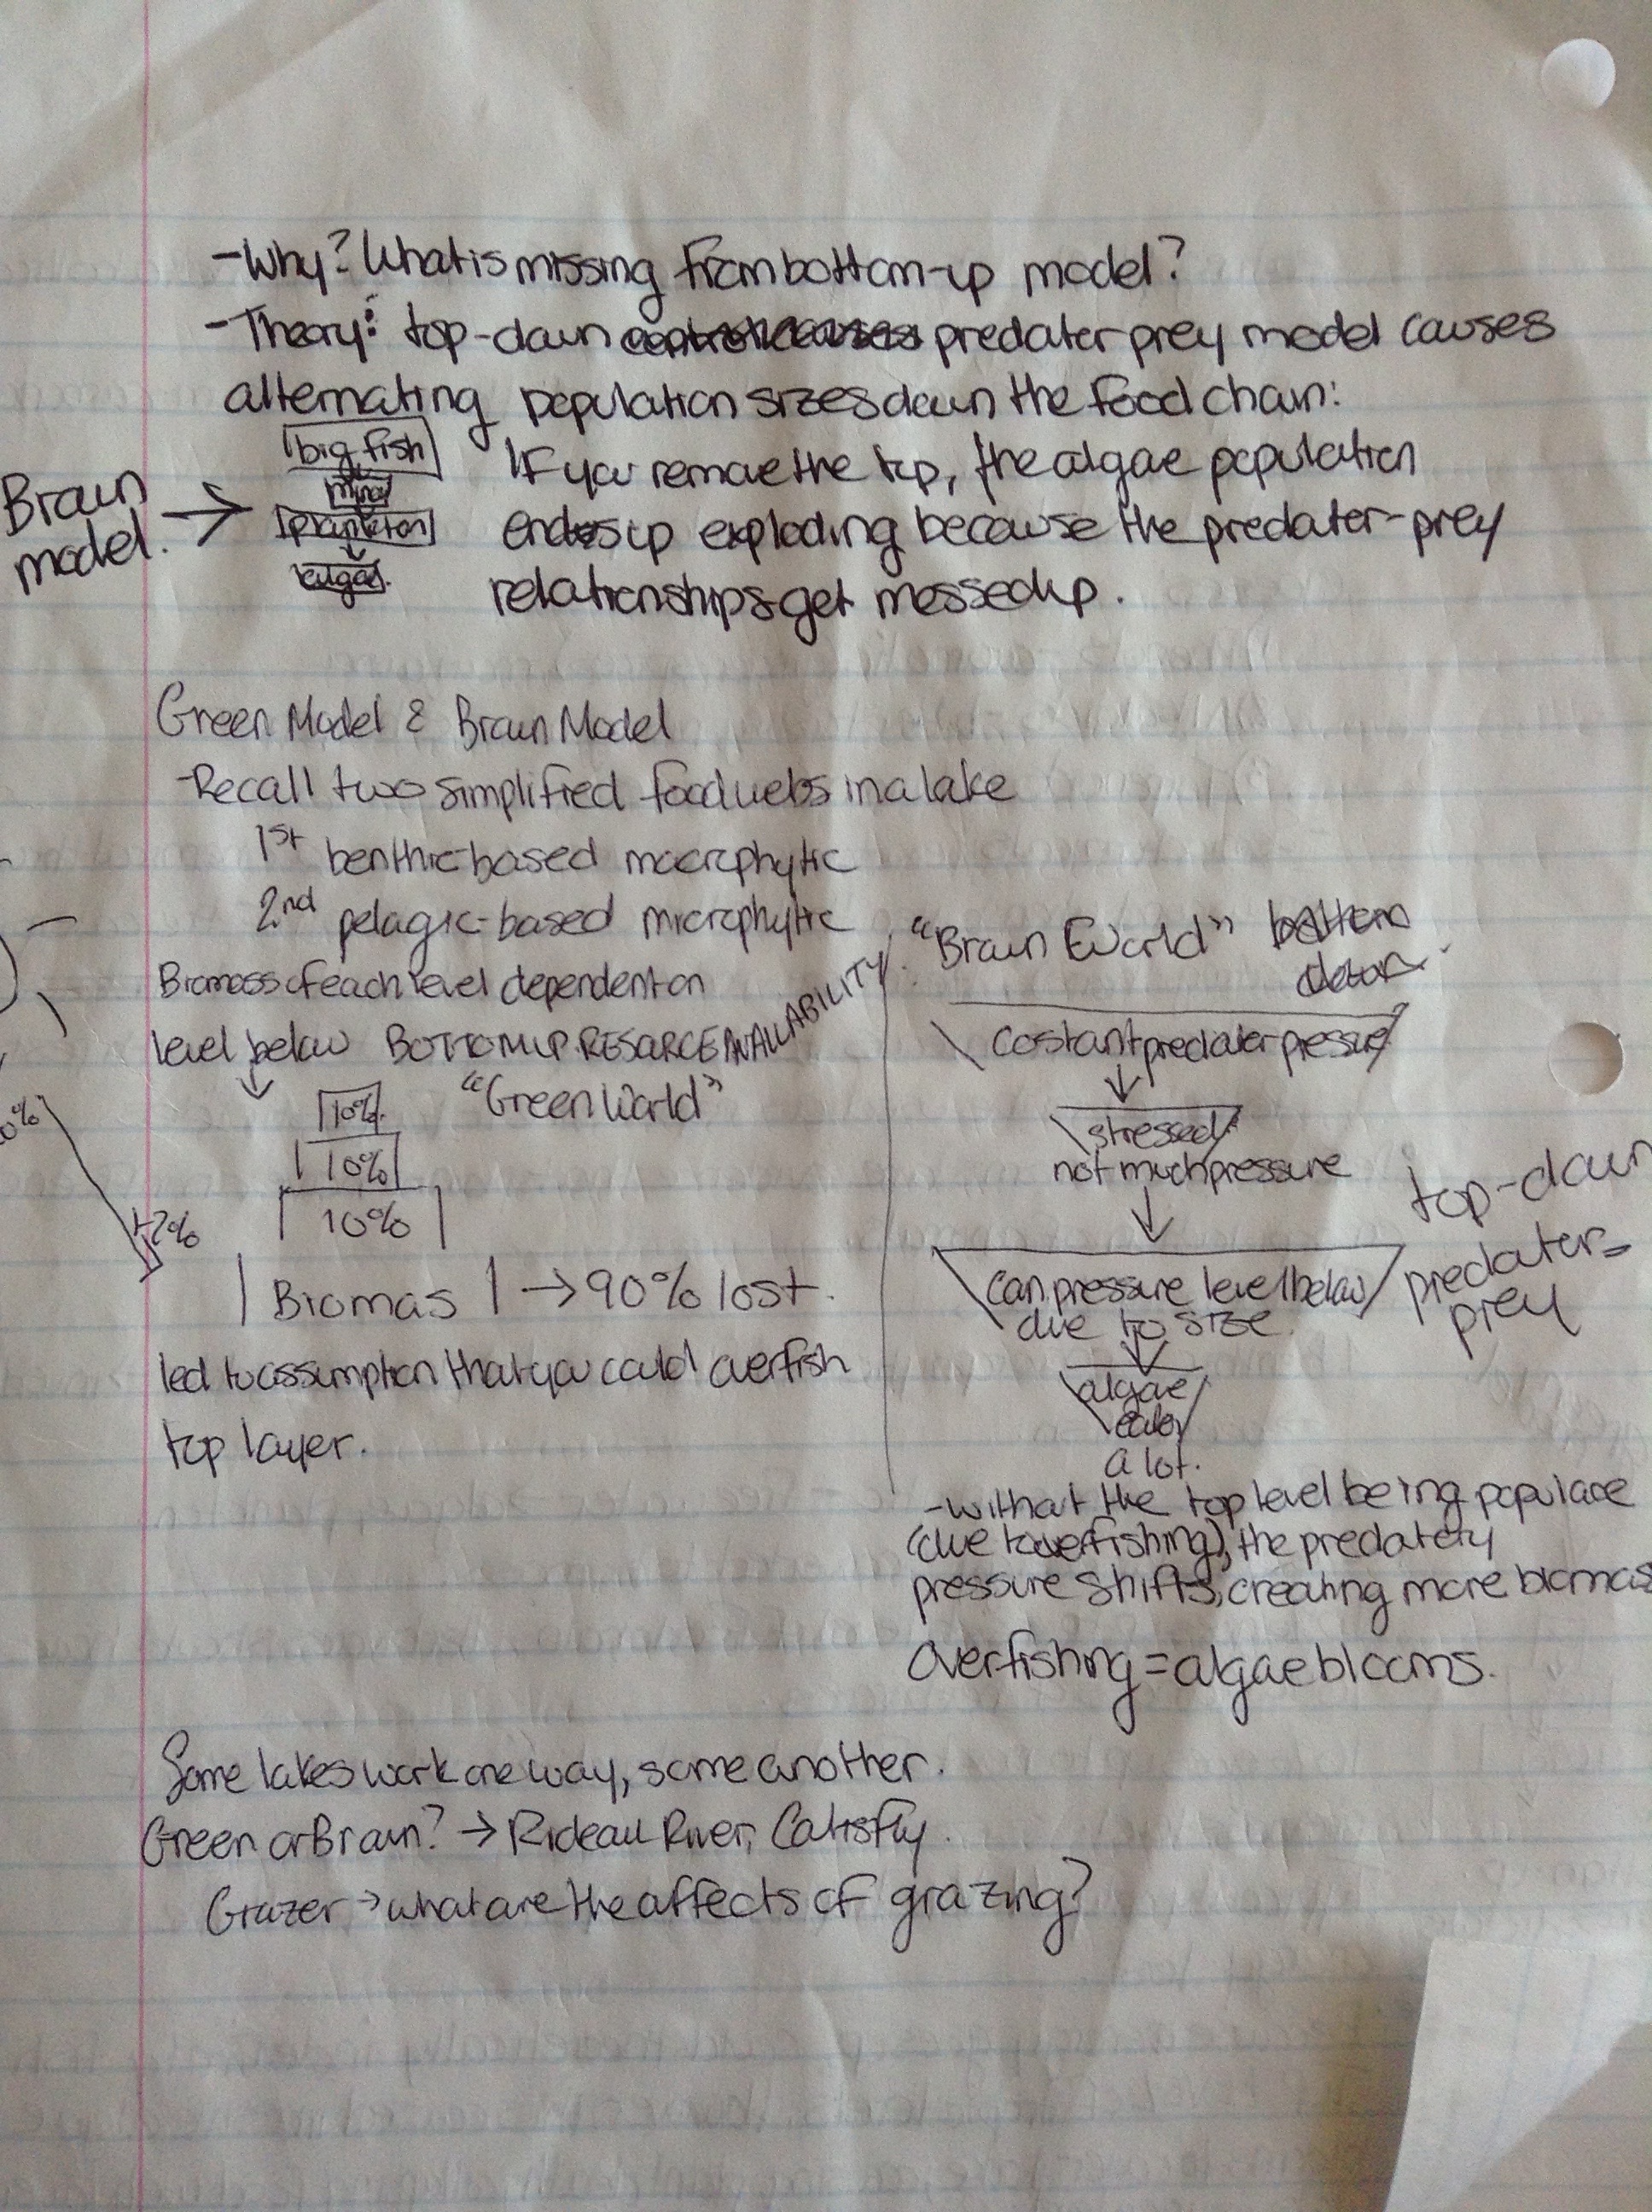 -Why? What is missing from bottom-up model?
-Theory: top-down predater prey model causes
alternating population sizes down the food chain:
Brown
model.
big fish
plankton
algae.
If you remove the top, the algae population
ends up exploding because the predater-prey
relationships get messed up.
Green Model & Brown Model
-Recall two simplified food webs in a lake
1st benthic-based macrophytic
2nd pelagic-based microphytic
Biomass of each level dependent on
level below BOTTOM UP RESARCE AVAILABILITY.
"Green World"
10%.
10%
10%
Biomas → 90% lost.
led to assumption that you could overfish
top layer.
"Brown World"
Costant predater pressure
stressed
not much pressure
can pressure level below
due to size.
algae
eaten
a lot.
top-down
predater-
prey
-without the top level being populace
(due to overfishing), the predatery
pressure shifts, creating more biomas
Overfishing = algae blooms.
Some lakes work one way, some another.
Green or Brown? → Rideau River,
Grazer → what are the affects of grazing?